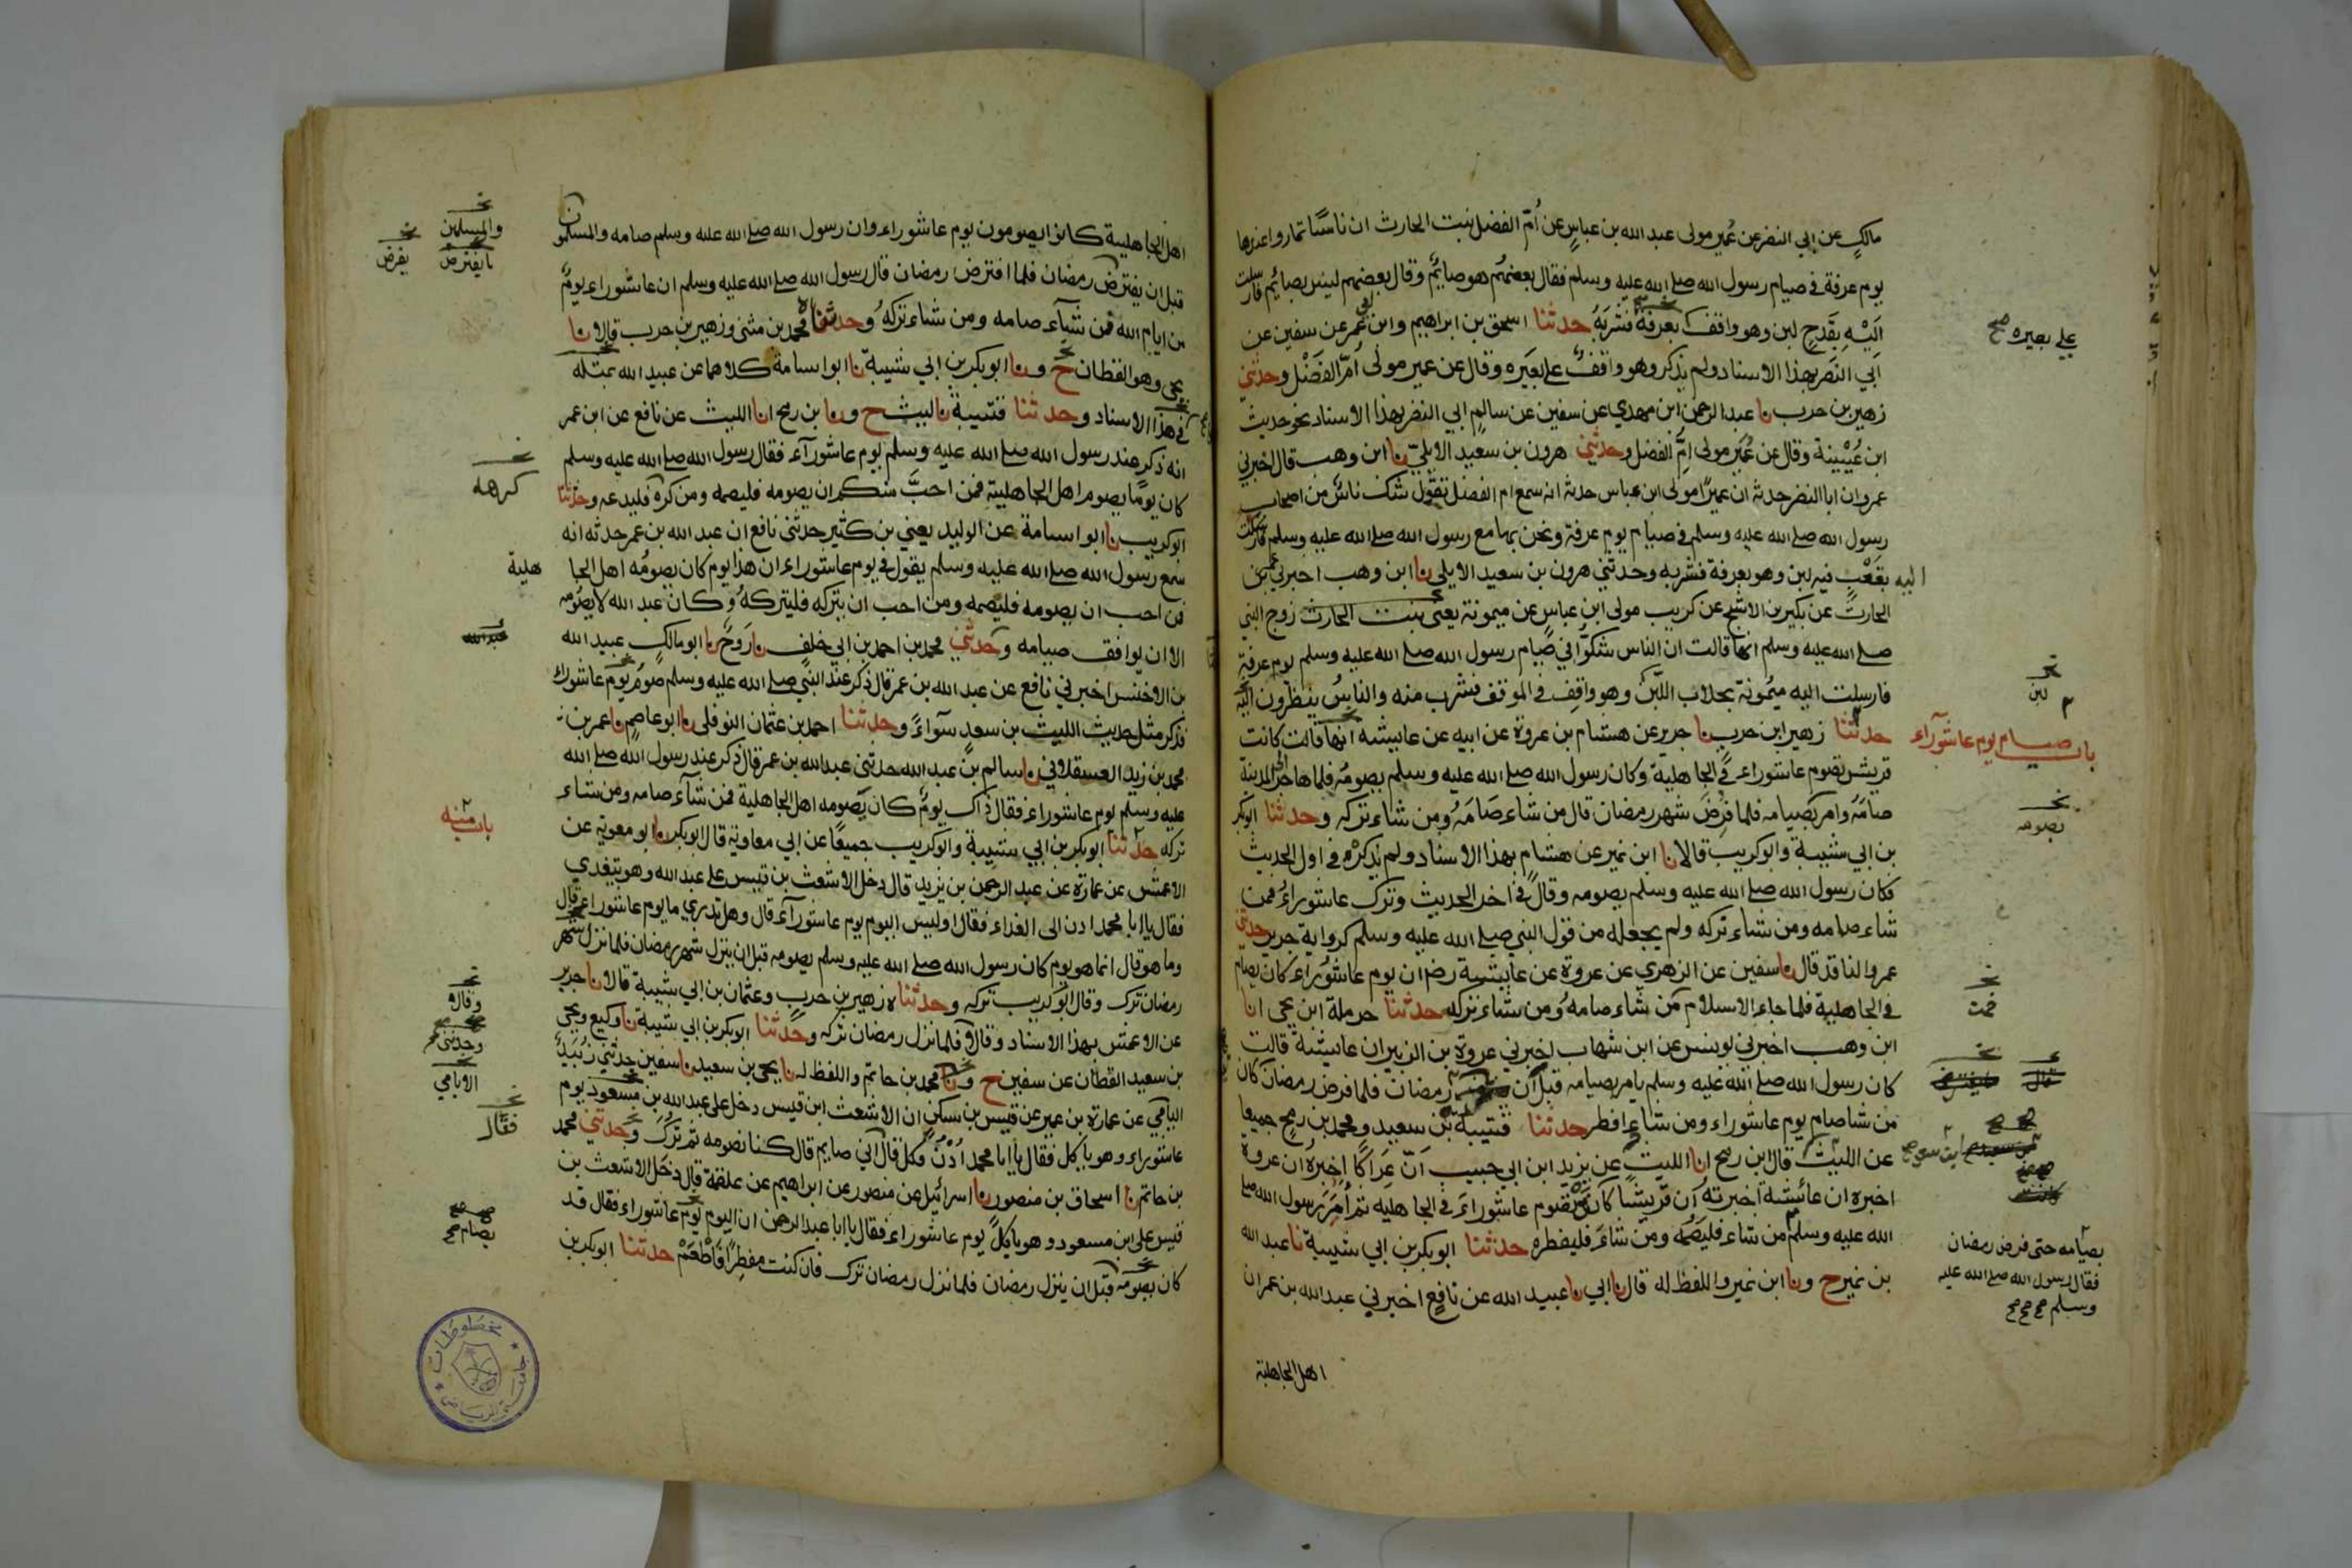 مالك عن ابي النضر عن عمير مولى عبد الله بن عباس عن أم الفضل بنت الحارث ان ناسا تماروا عندها
يوم عرفة في صيام رسول الله صلى الله عليه وسلم فقال بعضهم هو صايم وقال بعضهم ليس بصايم فارسلت
اليه بقدح لبن وهو واقف بعرفة فشربه حدثنا اسحق بن ابراهيم وابن ابي عمر عن سفين عن
ابي النضر بهذا الاسناد ولم يذكر وهو واقف على بعيره وقال عن عمير مولى ام الفضل وحدثني
زهير بن حرب نا عبد الرحمن ابن مهدي عن سفين عن سالم ابي النضر بهذا الاسناد نحو حديث
ابن عيينة وقال عن عمير مولى ام الفضل وحدثني هرون بن سعيد الايلي نا ابن وهب قال اخبرني
عمرو ان ابا النضر حدثه ان عميرا مولى ابن عباس حدثه انه سمع ام الفضل تقول شك ناس من اصحاب
رسول الله صلى الله عليه وسلم في صيام يوم عرفة ونحن بها مع رسول الله صلى الله عليه وسلم فارسلت
اليه بقعب فيه لبن وهو بعرفة فشربه وحدثني هرون بن سعيد الايلي نا ابن وهب اخبرني عمرو بن
الحارث عن بكير بن الاشج عن كريب مولى ابن عباس عن ميمونة يعني بنت الحارث زوج النبي
صلى الله عليه وسلم انها قالت ان الناس شكوا في صيام رسول الله صلى الله عليه وسلم يوم عرفة
فارسلت اليه ميمونة بحلاب اللبن وهو واقف في الموقف فشرب منه والناس ينظرون اليه
باب صيام يوم عاشورآء
حدثنا زهير ابن حرب نا جرير عن هشام بن عروة عن ابيه عن عايشه انها قالت كانت
قريش تصوم عاشوراء في الجاهلية وكان رسول الله صلى الله عليه وسلم يصومه فلما هاجر الى المدينة
صامه وامر بصيامه فلما فرض شهر رمضان قال من شاء صامه ومن شاء تركه وحدثنا ابو بكر
بن ابي شيبة وابو كريب قالا نا ابن نمير عن هشام بهذا الاسناد ولم يذكر في اول الحديث
فكان رسول الله صلى الله عليه وسلم يصومه وقال في اخر الحديث وترك عاشوراء فمن
شاء صامه ومن شاء تركه ولم يجعله من قول النبي صلى الله عليه وسلم كرواية جرير حدثني
عمرو الناقد قال نا سفين عن الزهري عن عروة عن عايشة رضه ان يوم عاشوراء كان يصام
في الجاهلية فلما جاء الاسلام من شاء صامه ومن شاء تركه حدثنا حرملة ابن يحيى انا
ابن وهب اخبرني يونس عن ابن شهاب اخبرني عروة بن الزبير ان عايشة قالت
كان رسول الله صلى الله عليه وسلم يامر بصيامه قبل ان رمضان فلما فرض رمضان كان
من شا صام يوم عاشوراء ومن شاء افطر حدثنا قتيبة بن سعيد ومحمد بن رمح جميعا
عن الليث قال ابن رمح انا الليث عن يزيد ابن ابي حبيب ان عراكا اخبره ان عروة
اخبره ان عائشة اخبرته ان قريشا كانت تصوم عاشوراء في الجاهليه ثم امر رسول الله صلى
الله عليه وسلم من شاء فليصمه ومن شاء فليفطره حدثنا ابو بكر بن ابي شيبة نا عبد الله
بن نمير ح ونا ابن نمير واللفظ له قال نا ابي نا عبيد الله عن نافع اخبرني عبد الله بن عمر ان
اهل الجاهلية
على بعيره صح
لبن
يصومه
فمن
بصيامه حتى فرض رمضان
فقال رسول الله صلى الله عليه
وسلم صح صح صح
اهل الجاهلية كانوا يصومون يوم عاشوراء وان رسول الله صلى الله عليه وسلم صامه والمسلمون
قبل ان يفترض رمضان فلما افترض رمضان قال رسول الله صلى الله عليه وسلم ان عاشوراء يوم
من ايام الله فمن شآء صامه ومن شاء تركه وحدثناه محمد بن مثنى وزهير بن حرب قالا نا
يحيى وهو القطان ح ونا ابو بكر بن ابي شيبة نا ابو اسامة كلاهما عن عبيد الله بمثله
في هذا الاسناد وحدثنا قتيبة نا ليث ح ونا بن رمح انا الليث عن نافع عن ابن عمر
انه ذكر عند رسول الله صلى الله عليه وسلم يوم عاشورآء فقال رسول الله صلى الله عليه وسلم
كان يوما يصومه اهل الجاهلية فمن احب منكم ان يصومه فليصمه ومن كره فليدعه وحدثنا
ابو كريب نا ابو اسامة عن الوليد يعني بن كثير حدثني نافع ان عبد الله بن عمر حدثه انه
سمع رسول الله صلى الله عليه وسلم يقول في يوم عاشوراء ان هذا يوم كان يصومه اهل الجا هلية
فمن احب ان يصومه فليصمه ومن احب ان يتركه فليتركه وكان عبد الله لا يصومه
الا ان يوافق صيامه وحدثني محمد بن احمد بن ابي خلف نا روح نا ابو مالك عبيد الله
بن الاخنس اخبرني نافع عن عبد الله بن عمر قال ذكر عند النبي صلى الله عليه وسلم صوم يوم عاشوراء
فذكر مثل حديث الليث بن سعد سواء وحدثنا احمد بن عثمان النوفلي نا ابو عاصم نا عمر بن
محمد بن زيد العسقلاني نا سالم بن عبد الله حدثني عبد الله بن عمر قال ذكر عند رسول الله صلى الله
عليه وسلم يوم عاشوراء فقال ذاك يوم كان يصومه اهل الجاهلية فمن شآء صامه ومن شاء
تركه حدثنا ابو بكر بن ابي شيبة وابو كريب جميعا عن ابي معاوية قال ابو بكر نا ابو معوية عن
الاعمش عن عمارة عن عبد الرحمن بن يزيد قال دخل الاشعث بن قيس على عبد الله وهو يتغدى
فقال يا ابا محمد ادن الى الغداء فقال اوليس اليوم يوم عاشورآء قال وهل تدري ما يوم عاشوراء قال
وما هو قال انما هو يوم كان رسول الله صلى الله عليه وسلم يصومه قبل ان ينزل شهر رمضان فلما نزل شهر
رمضان ترك وقال ابو كريب تركه وحدثناه زهير بن حرب وعثمان بن ابي شيبة قالا نا جرير
عن الاعمش بهذا الاسناد وقالا فلما نزل رمضان تركه وحدثنا ابو بكر بن ابي شيبة نا وكيع ويحيى
بن سعيد القطان عن سفين ح ونا محمد بن حاتم واللفظ له نا يحيى بن سعيد نا سفين حدثني زبيد
اليامي عن عمارة بن عمير عن قيس بن سكن ان الاشعث ابن قيس دخل على عبد الله بن مسعود يوم
عاشوراء وهو ياكل فقال يا ابا محمد ادن فكل قال اني صايم قال كنا نصومه ثم ترك وحدثني محمد
بن حاتم نا اسحاق بن منصور نا اسرائيل عن منصور عن ابراهيم عن علقمة قال دخل الاشعث بن
قيس على ابن مسعود وهو ياكل يوم عاشوراء فقال يا ابا عبد الرحمن ان اليوم يوم عاشوراء فقال قد
كان يصومه قبل ان ينزل رمضان فلما نزل رمضان ترك فان كنت مفطرا فاطعم حدثنا ابو بكر بن
والمسلمين
يفرض
كرهه
عبد الله
باب منه
وقالا
وحدثني
الايامي
فقال
يصام صح
مخطوطات
جامعة الرياض